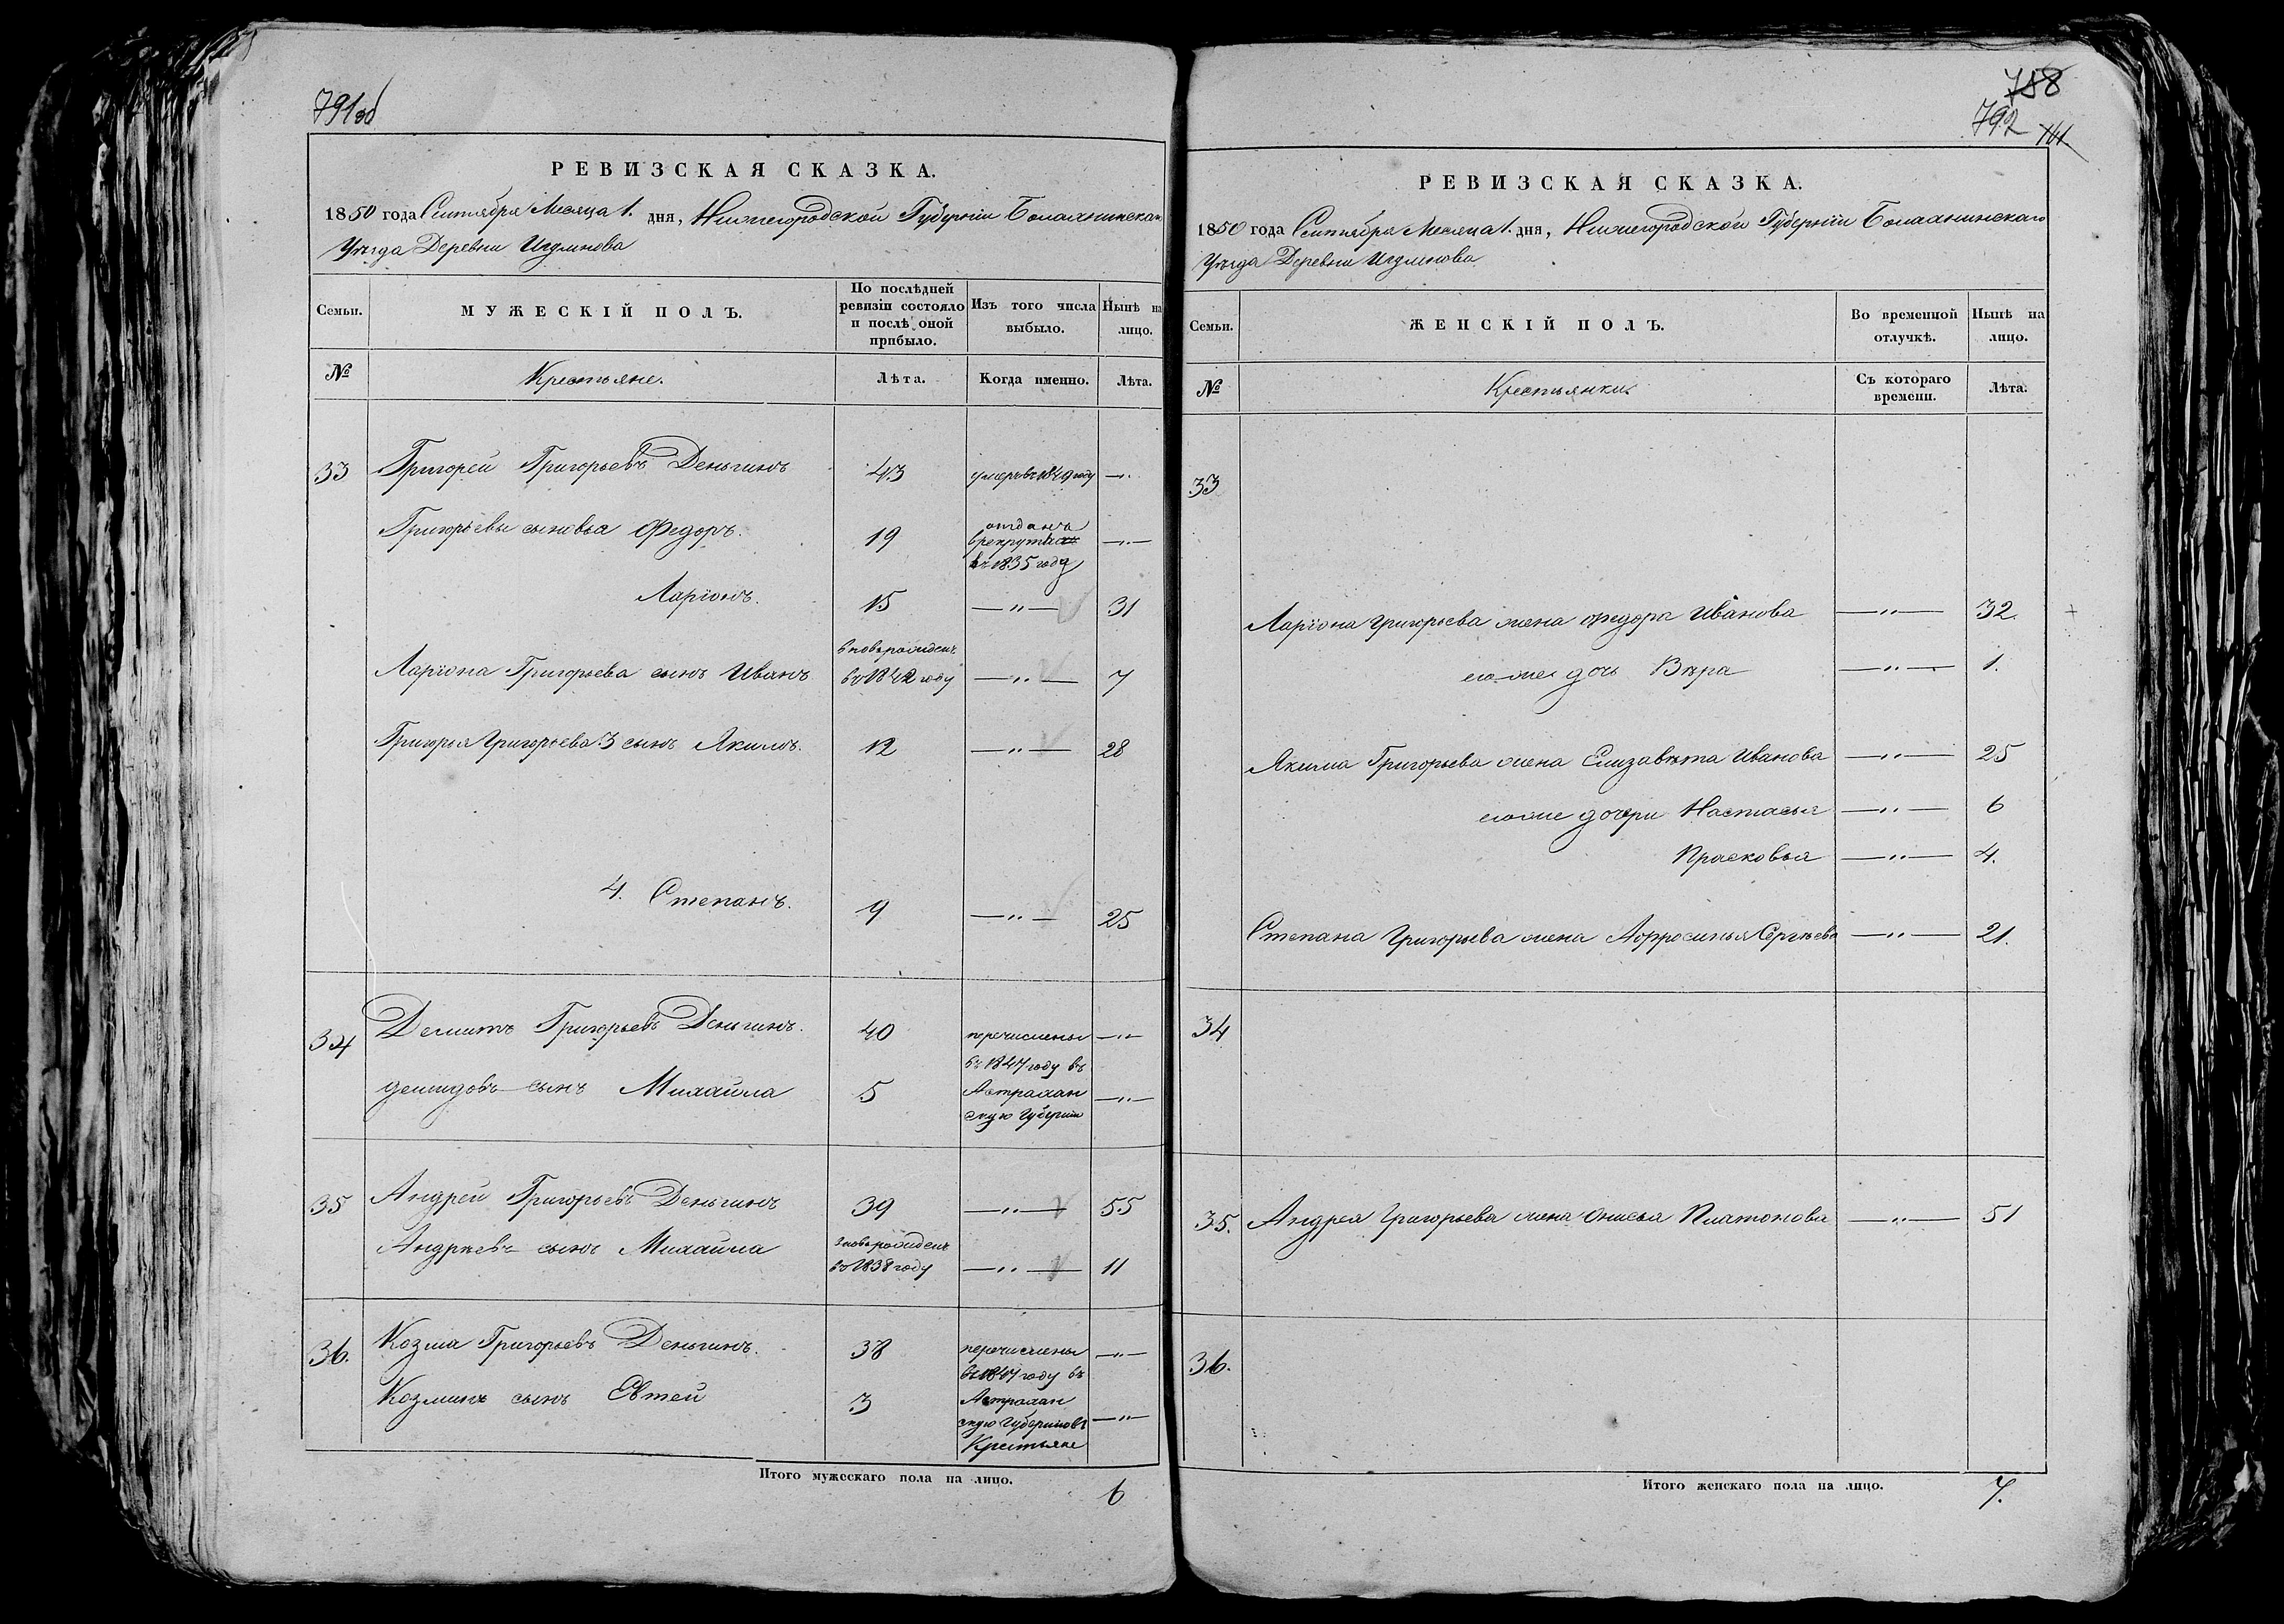 791об
РЕВИЗСКАЯ СКАЗКА.
1850 года Сентября Месяца 1. дня, Нижегородской Губернiи Балахнинскаго
Уѣзда Деревни
Семьи.
МУЖЕСКIЙ ПОЛЪ.
По послѣдней
ревизiи состояло
и послѣ оной
прибыло.
Изъ того числа
выбыло.
Нынѣ на
лицо.
№
Крестьяне.
Лѣта.
Когда именно.
Лѣта.
33 Григорей Григорьевъ Деньгинъ 43 умеръ въ 1849 году —.
Григорьевы сыновья Федоръ. 19 отданъ
в рекруты
въ 1835 году —"—
Ларiонъ. 15 —"— 31
Ларiона Григорьева сынъ Иванъ вновь рожденъ
въ 1842 году —"— 7
Григорья Григорьева 3 сынъ Якимъ. 12 —"— 28
4. Степанъ. 9 —"— 25
34 Демитъ Григорьевъ Деньгинъ. 40 перечислены —"—
въ 1847 году въ
демидовъ сынъ Михайла 5 Астрахан —"—
скую Губернiю
35 Андрей Григорьевъ Деньгинъ 39 —"— 55
Андрѣевъ сынъ Михайла вновь рожденъ
въ 1838 году —"— 11
36. Козма Григорьевъ Деньгинъ. 38 перечислены —"—
въ 1847 году въ
Козминъ сынъ Евтей 3 Астрахан
скую Губернiю въ —"—
Крестьяне
Итого мужескаго пола на лицо. 6
758
792
РЕВИЗСКАЯ СКАЗКА.
1850 года Сентября Месяца 1. дня, Нижегородской Губернiи Балахнинскаго
Уѣзда Деревни
Семьи.
ЖЕНСКIЙ ПОЛЪ.
Во временной
отлучкѣ.
Нынѣ на
лицо.
№
Крестьянки.
Съ котораго
времени.
Лѣта.
33
Ларiона Григорьева жена Федора Иванова —"— 32.
ево же дочь Вѣра —"— 1.
Якима Григорьева жена Елизавѣта Иванова —"— 25
ево же дочери Настасья —"— 6
Прасковья —"— 4.
Степана Григорьева жена Афросинья Сергѣева —"— 21.
34
35. Андрея Григорьева жена Онисья Платонова —"— 51
36.
Итого женскаго пола на лицо. 7.